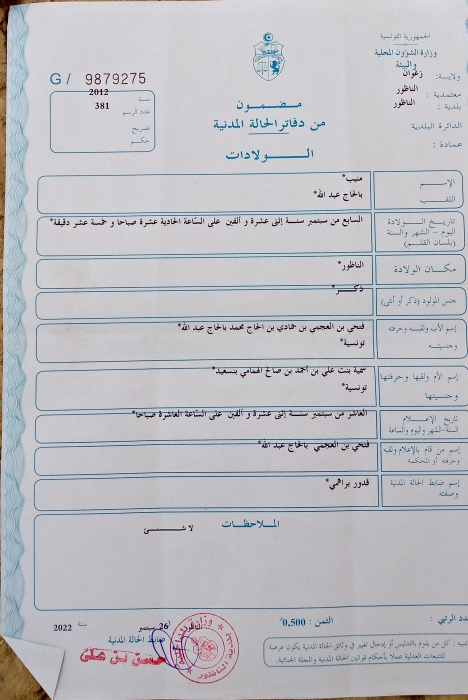 الجمهورية التونسية
وزارة الشؤون المحلية
والبيئة
ولاية: زغوان
معتمدية : الناظور
بلدية : الناظور
الدائرة البلدية
عمادة :
G / 9879275
سنة 2012
عدد الرسم 381
تصريح
حكم
مضمون
من دفاتر الحالة المدنية
الولادات
الإسم
منيب*
اللقب
بالحاج عبد الله*
تاريخ الولادة
اليوم - الشهر والسنة
(بلسان القلم)
السابع من سبتمبر سنة إثنى عشرة و ألفين على السّاعة الحادية عشرة صباحا و خمسة عشر دقيقة*
مكان الولادة
الناظور*
جنس المولود (ذكر أو أنثى)
ذكر*
إسم الأب ولقبه وحرفته
وجنسيته
فتحي بن العجمي بن حمادي بن الحاج محمد بالحاج عبد الله*
تونسية*
إسم الأم ولقبها وحرفتها
وجنسيتها
سمية بنت علي بن أحمد بن صالح الهمامي بنسعيد*
تونسية*
تاريخ الإعلام
السنة-الشهر واليوم والساعة
العاشر من سبتمبر سنة إثنى عشرة و ألفين على السّاعة العاشرة صباحا*
إسم من قام بالإعلام ولقبه
وحرفته أو المحكمة
فتحي بن العجمي بالحاج عبد الله*
إسم ضابط الحالة المدنية
وصفته
قدور براهمي*
الملاحظات
لا شئ
عدد الرتبي :
الثمن : 0,500*
26 سبتمبر سنة 2022
ضابط الحالة المدنية
حسن بن علي
تنبيه : كل من يقوم بالتدليس أو إدخال تغيير في وثائق الحالة المدنية يكون عرضة
للتتبعات العدلية عملا بأحكام قوانين الحالة المدنية والمجلة الجنائية.